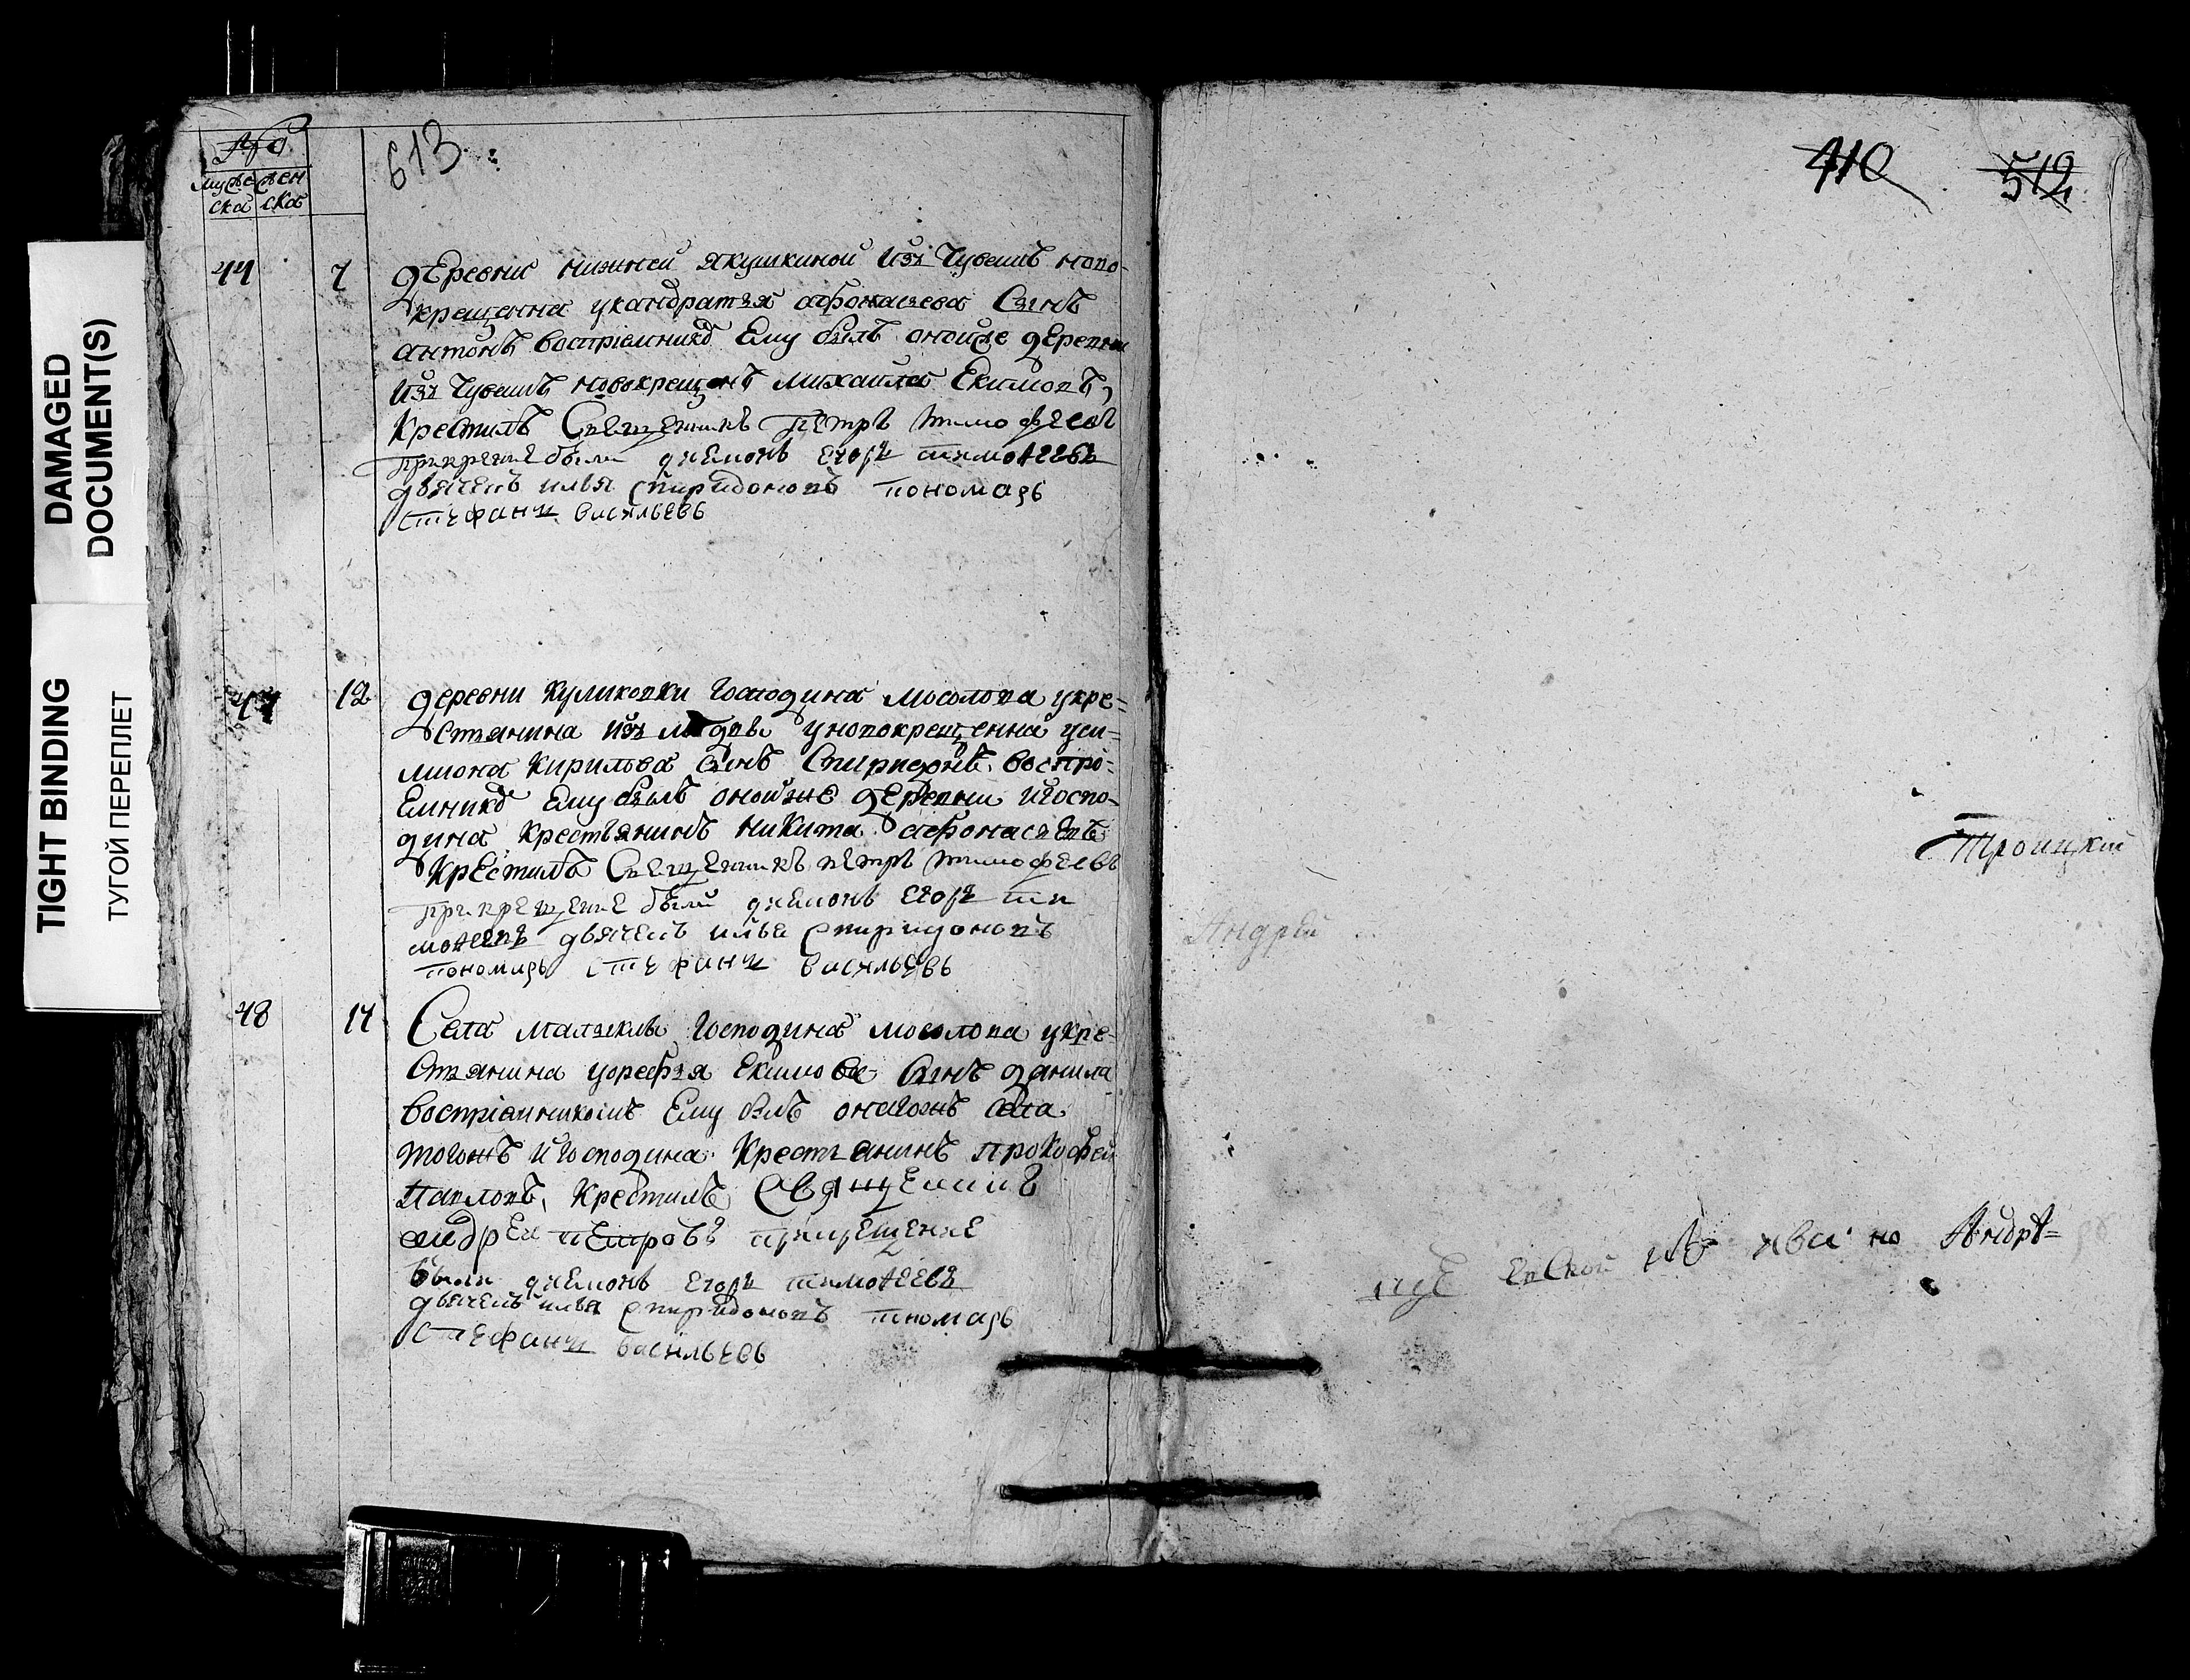 DAMAGED
DOCUMENT(S)
TIGHT BINDING
ТУГОЙ ПЕРЕПЛЕТ
613
муже жен
ска ска
44 7 деревни нижней якушкиной изъ Чувашъ ново-
крещенна укандратья афонасьева Сынъ
антонъ восприемникъ Ему былъ оной же деревни
изъ Чувашъ новокрещенъ михаила Екимовъ,
Крестилъ Священникъ петръ тимофеевъ
прикрещение были диаконъ егоръ тимоѳеевъ
дьячекъ илья спиридоновъ пономарь
стефанъ васильевъ
47 12 деревни куликовки господина мосолова укре-
стьянина изъ мордвы уновокрещенна уси-
миона Кирильва Сынъ Спиридонъ воспри-
емникъ ему былъ оной же деревни игоспо-
дина крестьянинъ никита афонасьевъ
Крестилъ Священникъ петръ тимофеевъ
прикрещение были диаконъ егоръ ти
моѳеевъ дьячекъ илья спиридоновъ
пономарь стефанъ васильевъ
48 14 Села малыклы господина мосолова укре-
стьянина уорефья Екимова Сынъ данила
восприемникомъ Ему былъ онагожъ села
тогожъ игосподина Крестьянинъ прокофей
Павловъ, Крестилъ Священникъ
андреи петровъ прикрещение
были диаконъ егоръ тимоѳеевъ
дьячекъ илья спиридоновъ пономарь
стефанъ васильевъ
410 512
Троицкий
Андрей